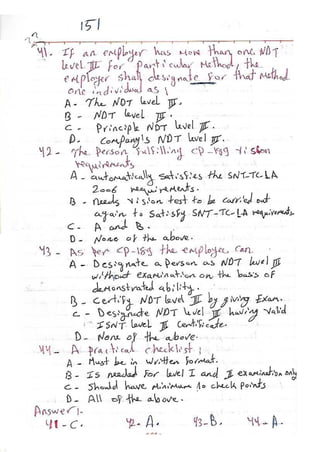 151
41. If an employer has more than one NDT
level III for particular method, the
employer shall designate for that method
one individual as;
A - The NDT level III.
B - NDT level III.
C - Principle NDT level III.
D. Company's NDT level III.
42 - The person fulfilling CP-189 vision
requirements
A - automatically satisfies the SNT-TC-1A
2006 requirements.
B - Needs vision test to be carried out
again to satisfy SNT-TC-1A requirements.
C - A and B.
D - None of the above.
43 - As per CP-189 the employee can
A - Designate a person as NDT level III
without examination on the basis of
demonstrated ability.
B - Certify NDT level III by giving Exam.
C - Designate NDT level III having valid
ISNT level III Certificate.
D - None of the above.
44 - A practical checklist;
A - Must be in written format.
B - Is needed for level I and II examination only
C - Should have minimum 10 check points
D - All of the above.
Answer:-
41-C. 42-A. 43-B. 44-A.